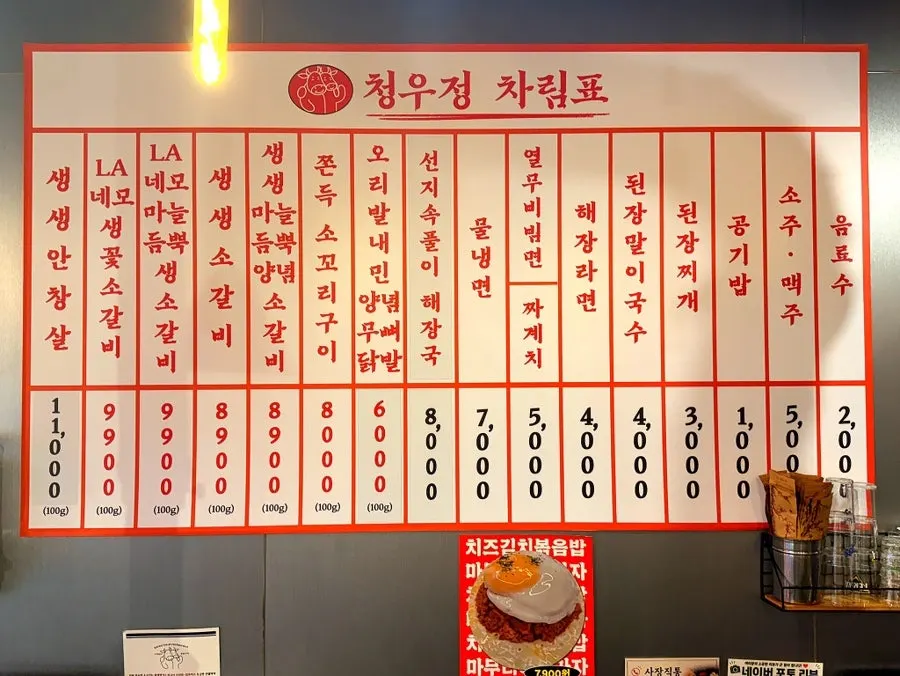 청우정 차림표
생생안창살
11,000
(100g)
LA
네모
생꽃소갈비
9900
(100g)
LA
네모
마늘
듬뿍
생소갈비
9900
(100g)
생생소갈비
8900
(100g)
생생
마늘
듬뿍
양념
소갈비
8900
(100g)
쫀득 소꼬리구이
8000
(100g)
오리발내민
양념
무뼈
닭발
6000
(100g)
선지속풀이 해장국
8,000
물냉면
7,000
열무비빔면
짜계치
5,000
해장라면
4,000
된장말이국수
4,000
된장찌개
3,000
공기밥
1,000
소주·맥주
5,00
음료수
2,00
치즈김치볶음밥
7,900원
사장직통
네이버 포토 리뷰